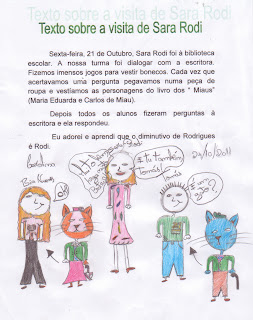 Texto sobre a visita de Sara Rodi
Texto sobre a visita de Sara Rodi
Sexta-feira, 21 de Outubro, Sara Rodi foi à biblioteca
escolar. A nossa turma foi dialogar com a escritora.
Fizemos imensos jogos para vestir bonecos. Cada vez que
acertavamos uma pergunta pegavamos numa peça de
roupa e vestíamos as personagens do livro dos " Miaus"
(Maria Eduarda e Carlos de Miau).
Depois todos os alunos fizeram perguntas à
escritora e ela respondeu.
Eu adorei e aprendi que o diminutivo de Rodrigues
é Rodi.
também
24/10/2011